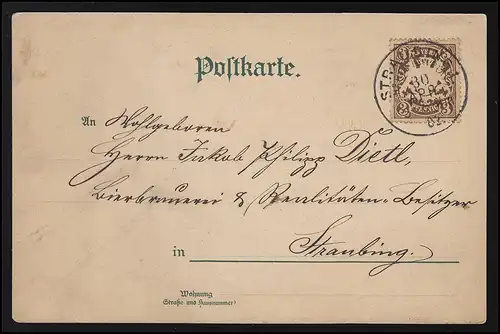 Postkarte.
STRAUBING
30
An Wohlgeboren
Herrn Jakob Philipp Dietl,
Bierbrauerei & Realitäten-Besitzer
in Straubing.
Wohnung
Straße und Hausnummer